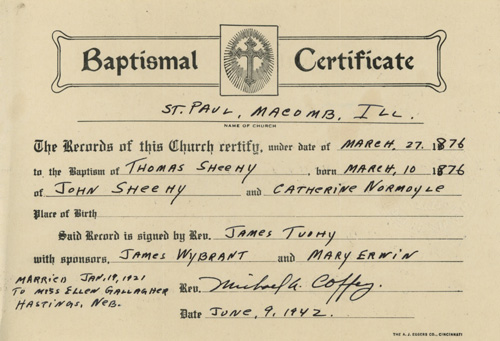 Baptismal Certificate
ST. PAUL, MACOMB, ILL.
NAME OF CHURCH
The Records of this Church certify, under date of MARCH, 27. 1876
to the Baptism of THOMAS SHEEHY, born MARCH, 10 1876
of JOHN SHEEHY and CATHERINE NORMOYLE
Place of Birth
Said Record is signed by Rev. JAMES TUOHY
with sponsors, JAMES WYBRANT and MARY ERWIN
MARRIED JAN. 19, 1921
TO MISS ELLEN GALLAGHER
HASTINGS, NEB.
Rev. Michael A. Coffey.
Date JUNE, 9, 1942.
THE H. J. EGGERS CO., CINCINNATI